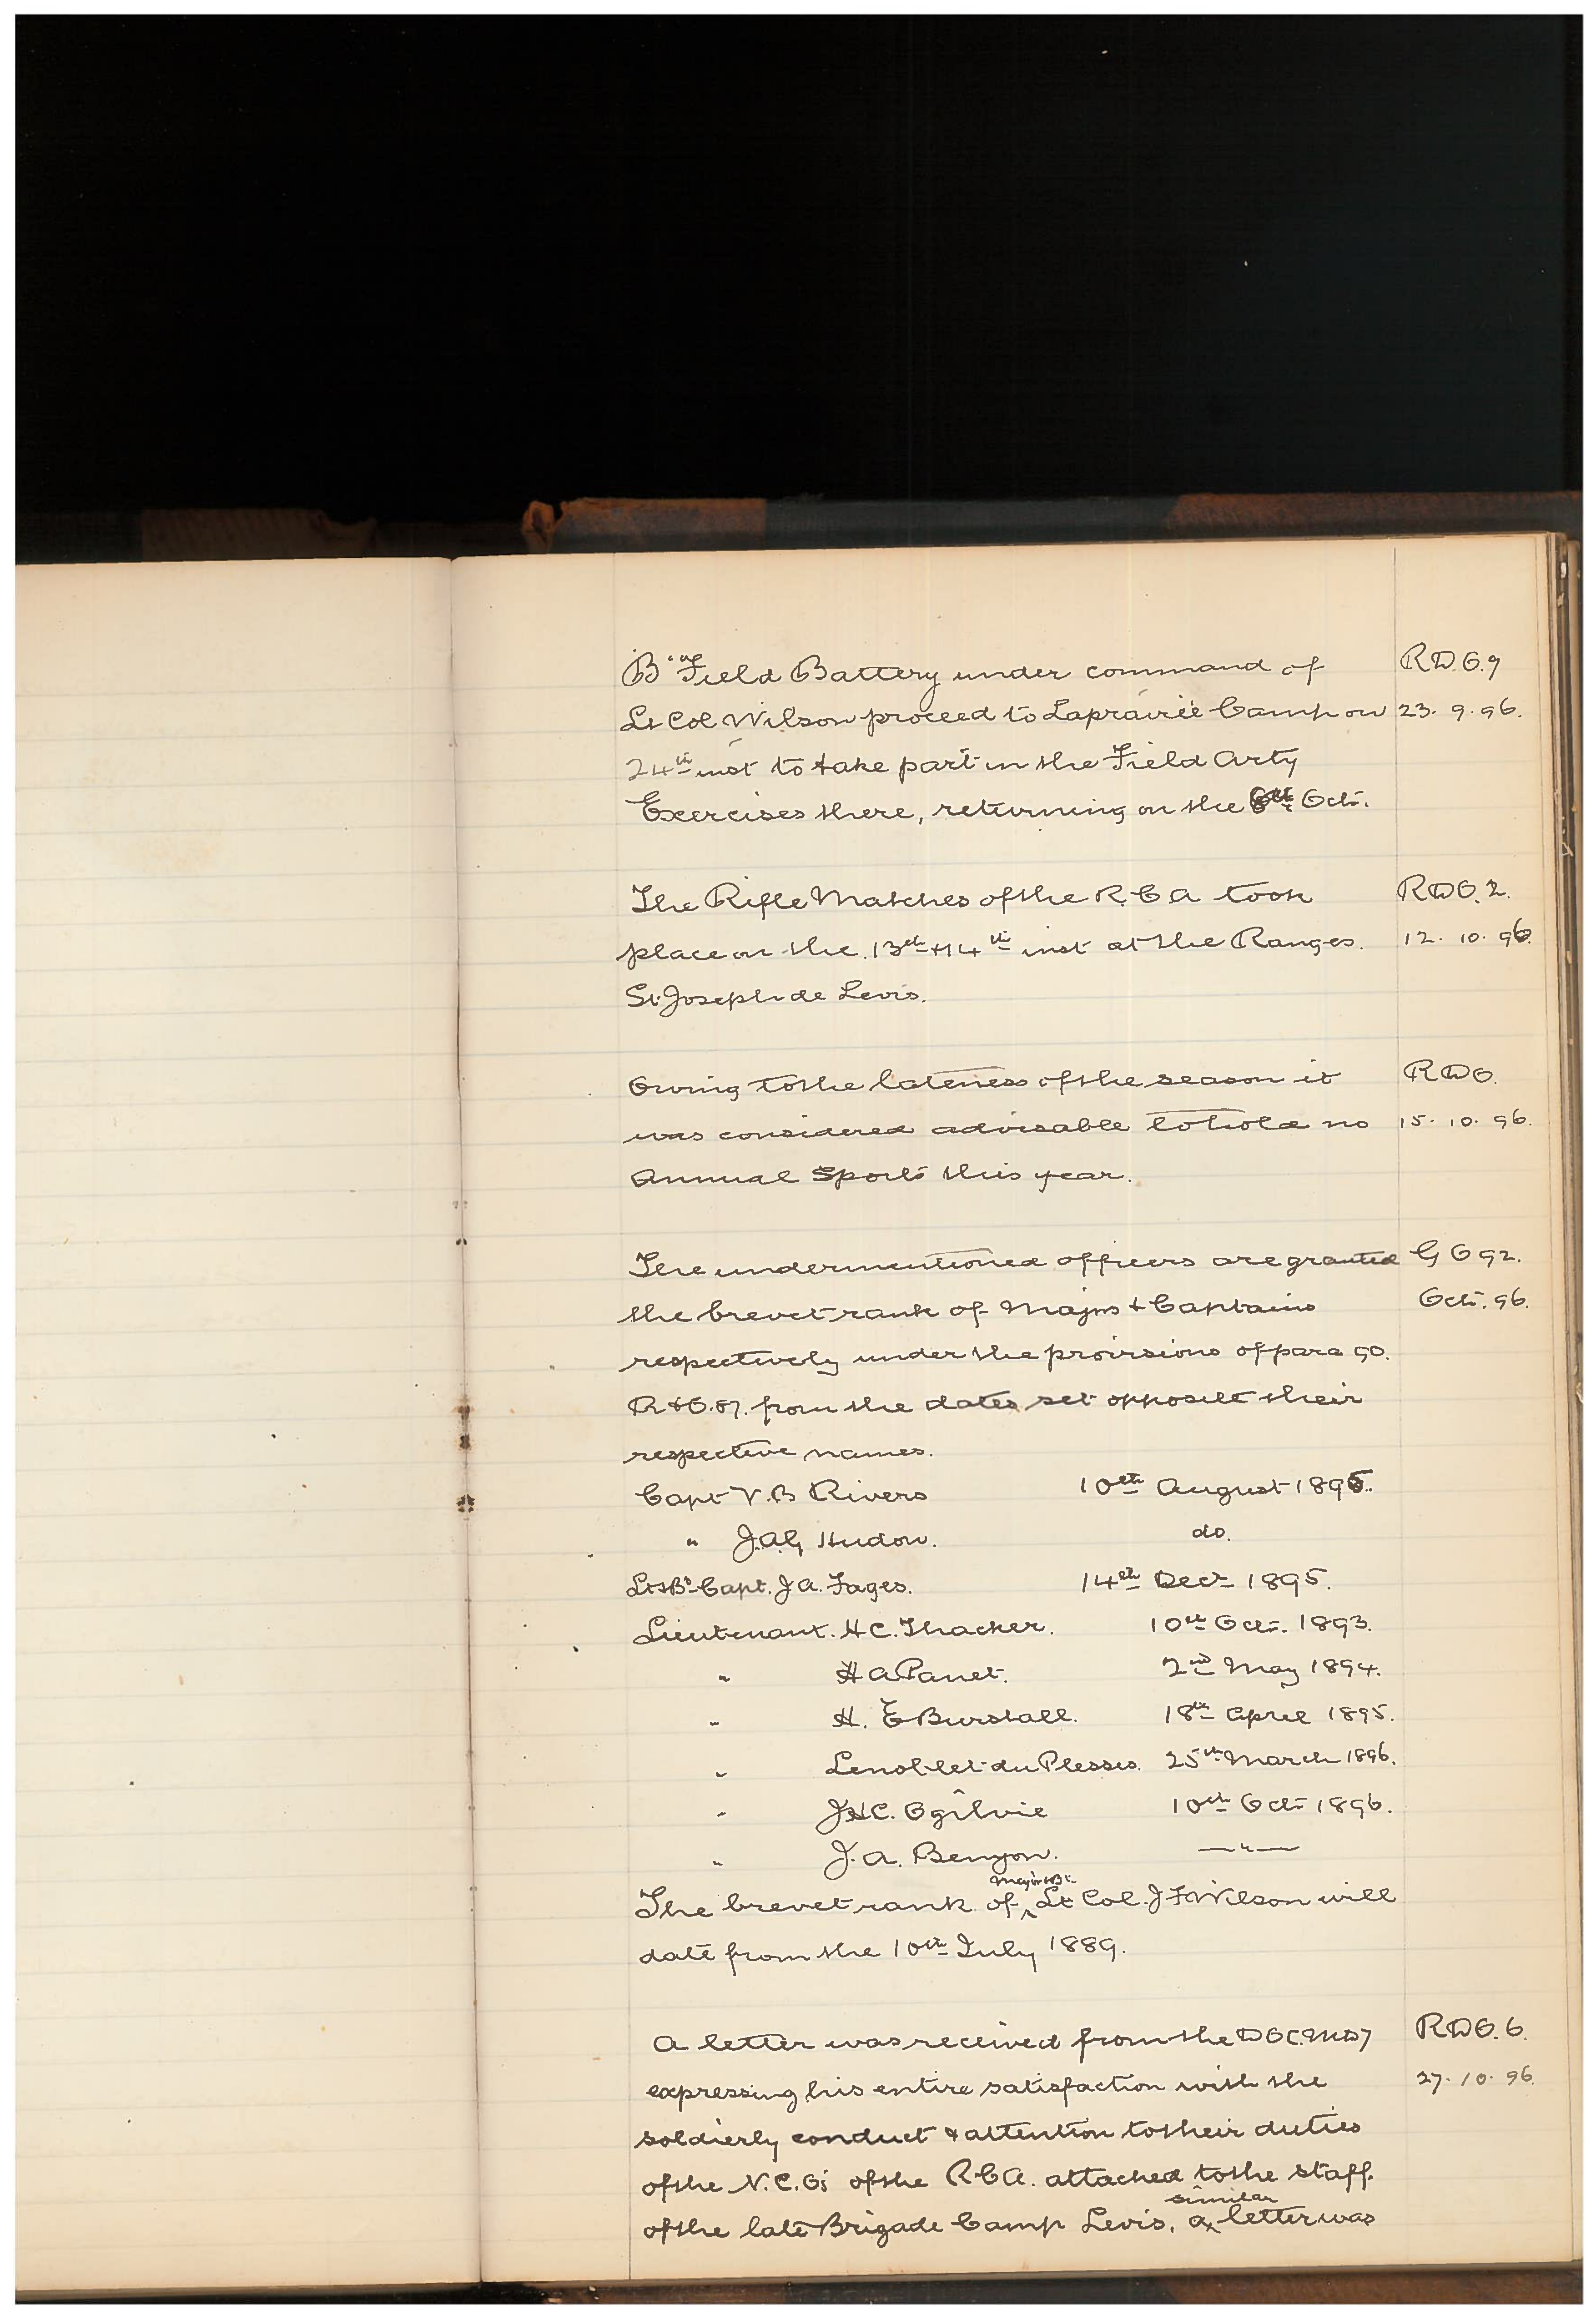 "B" Field Battery under command of R.D.O. 9
Lt Col Wilson proceed to Laprairie Camp on 23. 9. 96.
24th inst to take part in the Field Arty
Exercises there, returning on the Oct.
The Rifle Matches of the R.C.A took R.D.O. 2.
place on the 13th & 14th inst at the Ranges. 12. 10. 96.
St Joseph de Levis.
Owing to the lateness of the season it R.D.O.
was considered advisable to hold no 15. 10. 96.
Annual Sports this year.
The undermentioned officers are granted G O 92.
the brevet rank of Majors & Captains Oct. 96.
respectively under the provisions of para 90.
R & O. 87. from the dates set opposite their
respective names.
Capt V.B Rivers 10th August 1895.
" J.A.G Hudon. do.
Lt & Bt Capt. J A. Fages. 14th Decr 1895.
Lieutenant. H C. Thacker. 10th Oct. 1893.
" H A Panet. 2nd May 1894.
" H. E Burstall. 18th April 1895.
" Lenoblet du Plessis. 25th March 1896.
" J H C. Ogilvie 10th Oct 1896.
" J. A. Benyon. — " —
The brevet rank of Major & Bt Lt Col. J F Wilson will
date from the 10th July 1889.
A letter was received from the D O C. M D 7 R.D.O. 6.
expressing his entire satisfaction with the 27. 10. 96.
soldierly conduct & attention to their duties
of the N.C.O's of the R C A. attached to the staff.
of the late Brigade Camp Levis, a similar letter was